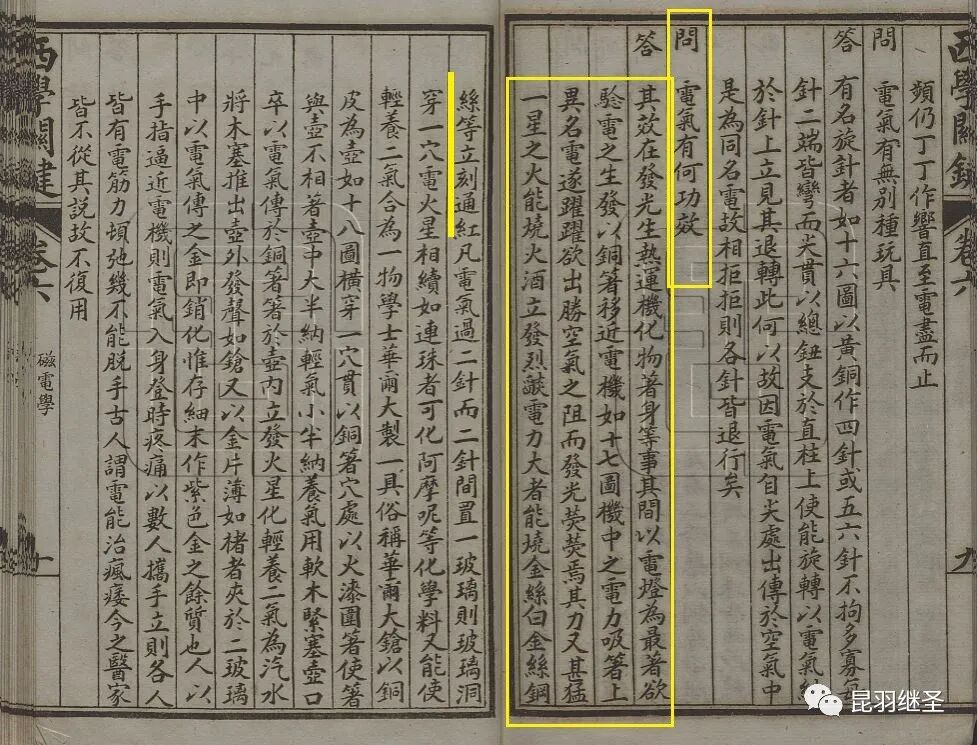 西學關鍵 卷六 九
頻仍丁丁作響直至電盡而止
問 電氣有無別種玩具
答 有名旋針者如十六圖以黃銅作四針或五六針不拘多寡每
針二端皆彎而尖貫以總鈕支於直柱上使能旋轉以電氣傳
於針上立見其退轉此何以故因電氣自尖處出傳於空氣中
是為同名電故相拒拒則各針皆退行矣
問 電氣有何功效
答 其效在發光生熱運機化物著身等事其間以電燈為最著欲
驗電之生發以銅箸移近電機如十七圖機中之電力吸箸上
異名電遂躍躍欲出勝空氣之阻而發光熒熒焉其力又甚猛
一星之火能燒火酒立發烈燄電力大者能燒金絲白金絲鋼
絲等立刻通紅凡電氣過二針而二針間置一玻璃則玻璃洞
穿一穴電火星相續如連珠者可化阿摩呢等化學料又能使
輕養二氣合為一物學士華爾大製一具俗稱華爾大鎗以銅
皮為壺如十八圖橫穿一穴貫以銅箸穴處以火漆圍著使箸
與壺不相著壺中大半納輕氣小半納養氣用軟木緊塞壺口
卒以電氣傳於銅箸箸於壺內立發火星化輕養二氣為汽水
將木塞推出壺外發聲如鎗又以金片薄如楮者夾於二玻璃
中以電氣傳之金即銷化惟存細末作紫色金之餘質也人以
手指逼近電機則電氣入身登時疼痛以數人攜手立則各人
皆有電筋力頓弛幾不能脫手古人謂電能治瘋痿今之醫家
皆不從其說故不復用
西學關鍵 卷六 磁電學 十
昆羽继圣